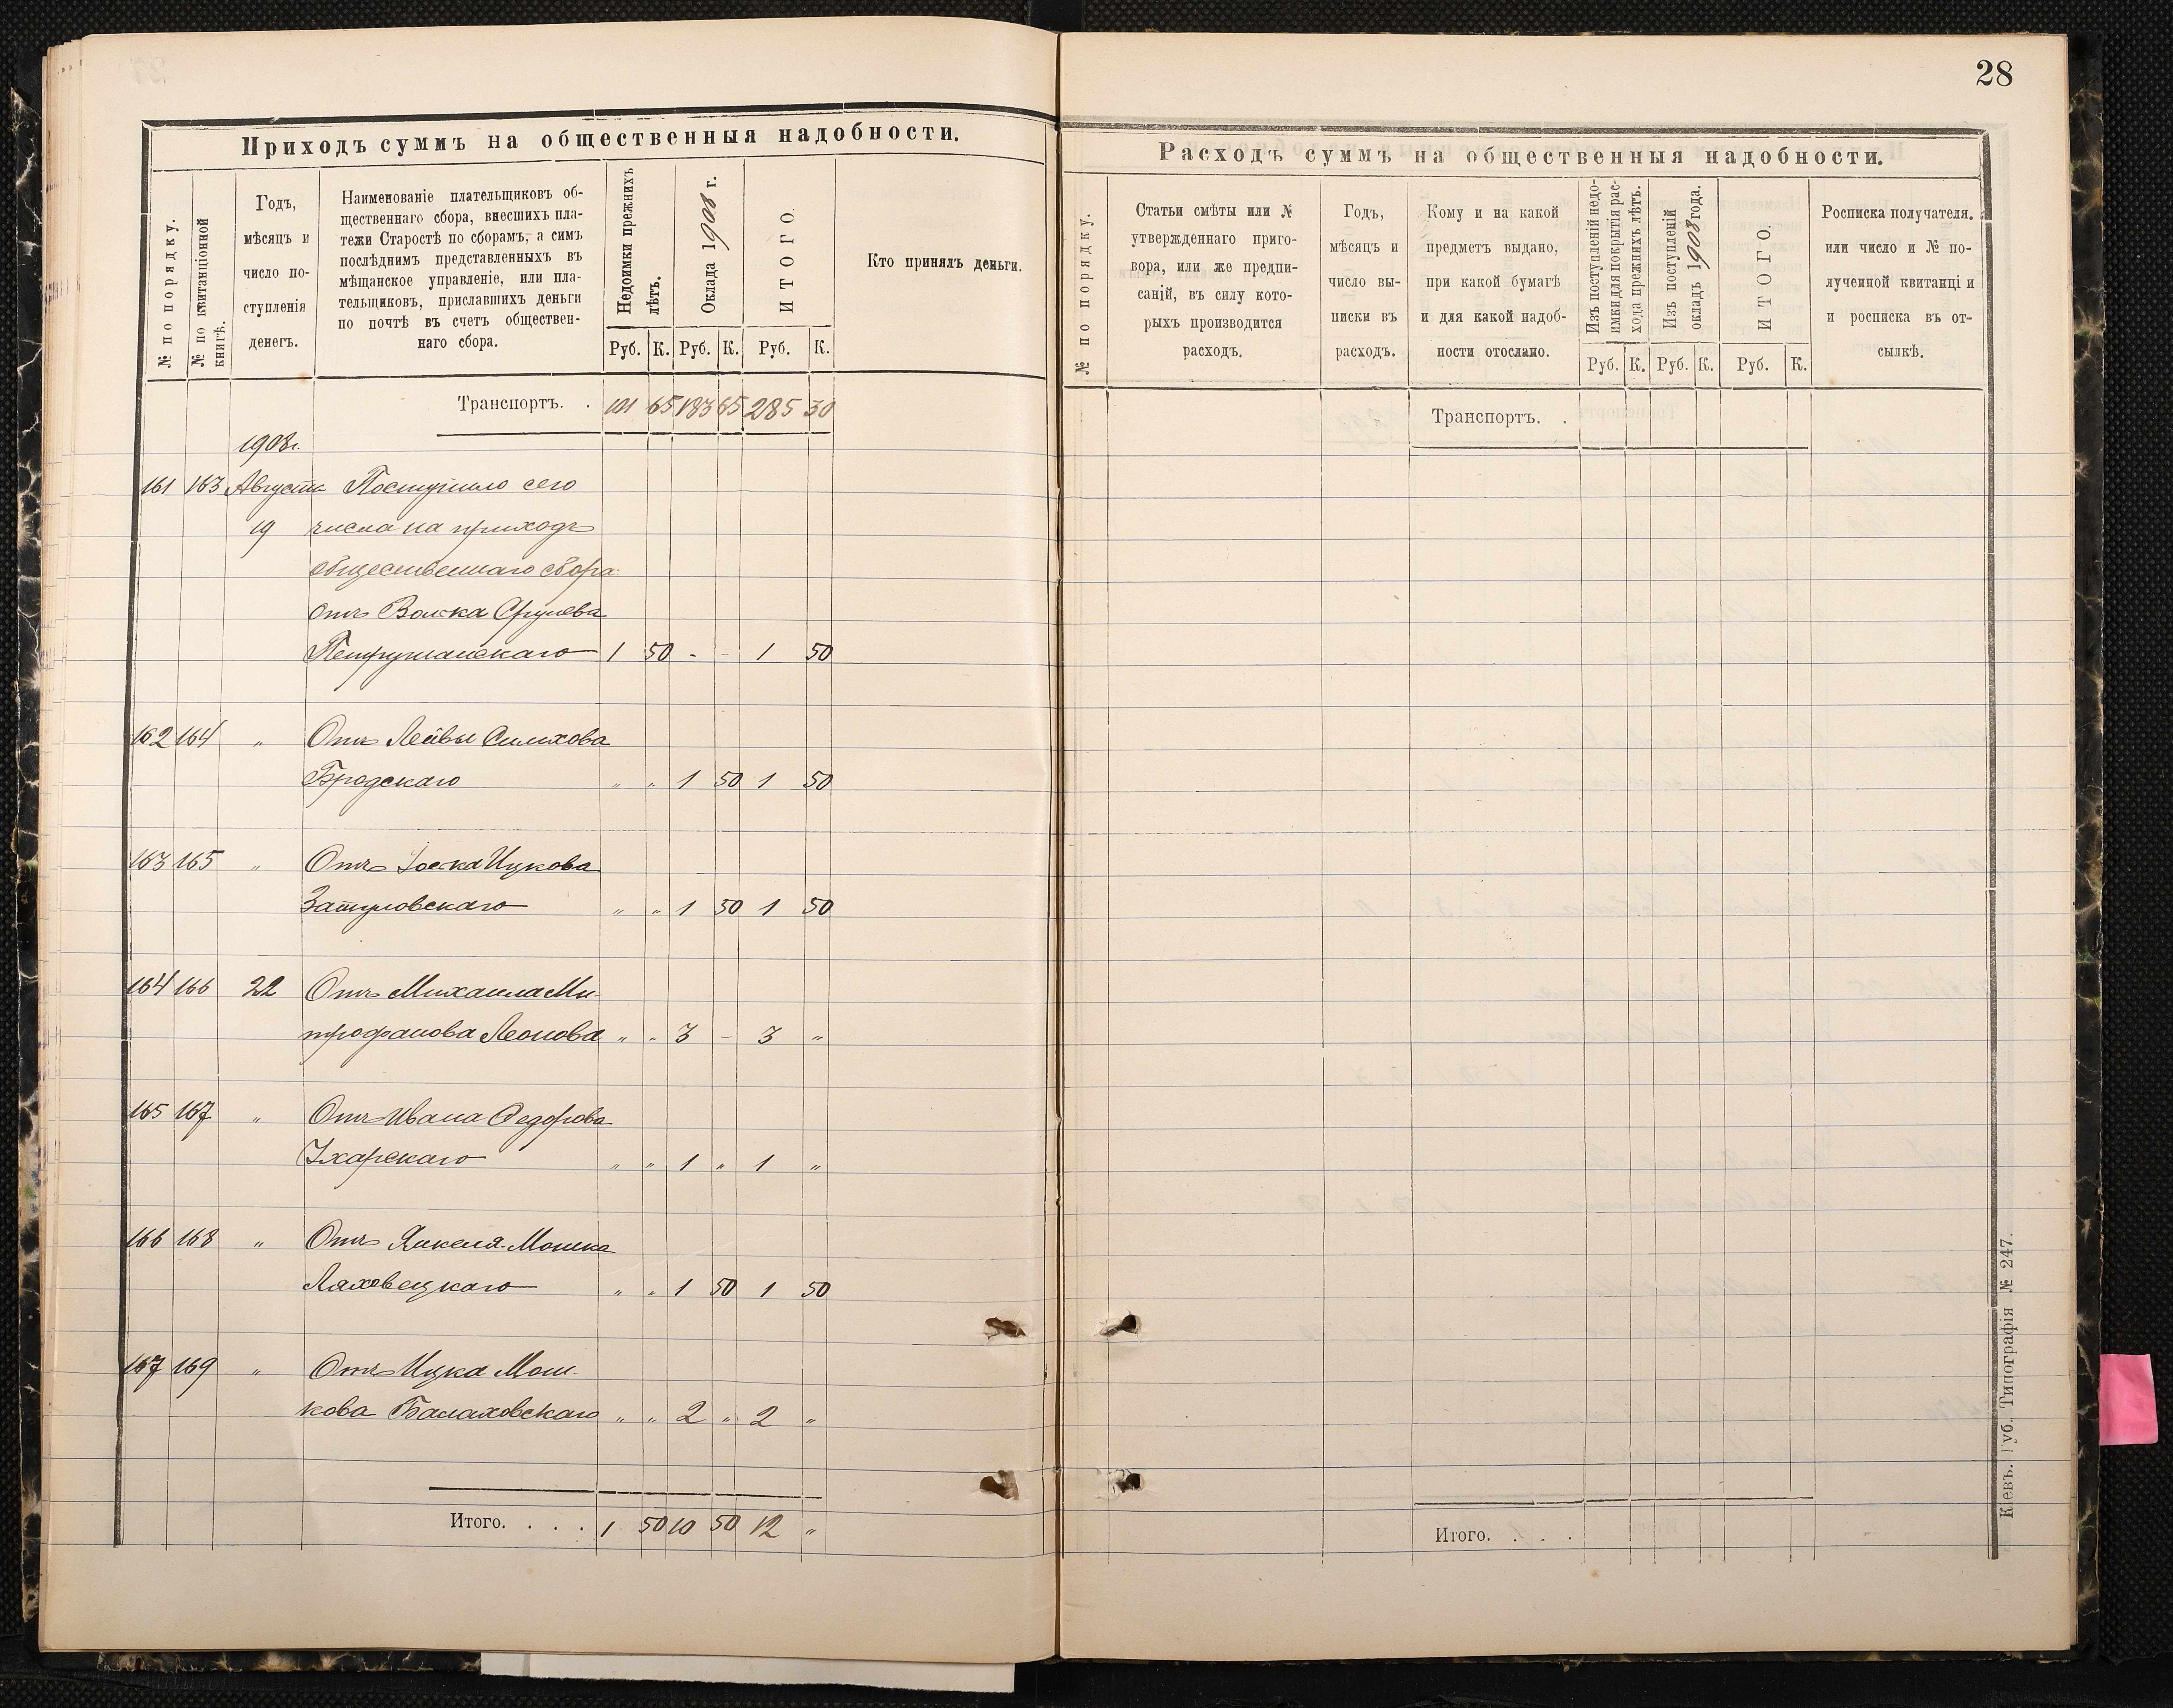 28
Приходъ суммъ на общественныя надобности.
№ по порядку.
№ по квитанціонной книгѣ.
Годъ,
мѣсяцъ и
число по-
ступленія
денегъ.
Наименованіе плательщиковъ об-
щественнаго сбора, внесшихъ пла-
тежи Старостѣ по сборамъ, а симъ
послѣднимъ представленныхъ въ
мѣщанское управленіе, или пла-
тельщиковъ, приславшихъ деньги
по почтѣ въ счетъ обществен-
наго сбора.
Недоимки прежнихъ
лѣтъ.
Оклада 1908 г.
ИТОГО.
Кто принялъ деньги.
Руб. К. Руб. К. Руб. К.
Транспортъ. . 101 65 183 65 285 30
1908г.
161 163 Августа Поступило сего
19 числа на приходъ
общественнаго сбора
отъ Волька Срулева
Петрушанскаго 1 50 - - 1 50
162 164 " Отъ Лейвы Симхова
Бродскаго " " 1 50 1 50
163 165 " Отъ Іоська Ицкова
Затуловскаго " " 1 50 1 50
164 166 22 Отъ Михаила Ми-
трофанова Леонова " " 3 - 3 "
165 167 " Отъ Ивана Федорова
Ухарскаго " " 1 " 1 "
166 168 " Отъ Янкеля-Мошка
Ляховецкаго " " 1 50 1 50
167 169 " Отъ Ицка Мош-
кова Балаховскаго " " 2 " 2 "
Итого. . . . 1 50 10 50 12 "
Расходъ суммъ на общественныя надобности.
№ по порядку.
Статьи смѣты или №
утвержденнаго приго-
вора, или же предпи-
саній, въ силу кото-
рыхъ производится
расходъ.
Годъ,
мѣсяцъ и
число вы-
писки въ
расходъ.
Кому и на какой
предметъ выдано,
при какой бумагѣ
и для какой надоб-
ности отослано.
Изъ поступленій недо-
имки для покрытія рас-
хода прежнихъ лѣтъ.
Изъ поступленій
окладъ 1908 года.
ИТОГО.
Росписка получателя,
или число и № по-
лученной квитанціи
и росписка въ от-
сылкѣ.
Руб. К. Руб. К. Руб. К.
Транспортъ. .
Итого. . . .
Кіевъ. Губ. Типографія № 247.